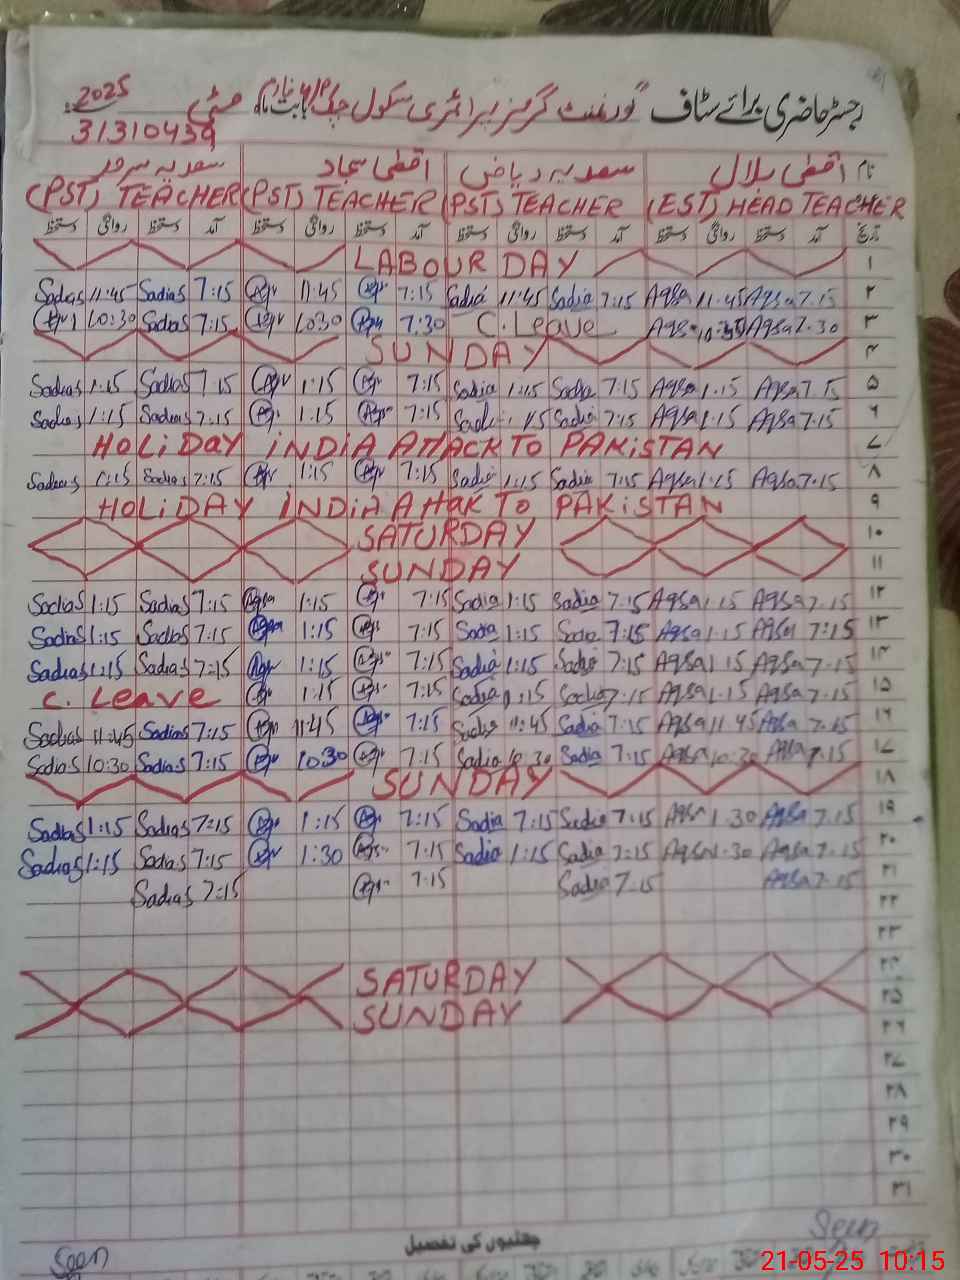 رجسٹر حاضری برائے سٹاف گورنمنٹ گرلز پرائمری سکول چک بابت ماہ مئی 2025
31310439
نام اقصٰی بلال سعدیہ ریاض اقصٰی سجاد سعدیہ سرور
(EST) HEAD TEACHER (PST) TEACHER (PST) TEACHER (PST) TEACHER
تاریخ آمد دستخط روانگی دستخط آمد دستخط روانگی دستخط آمد دستخط روانگی دستخط آمد دستخط روانگی دستخط
LABOUR DAY ۱
SadiaS 11:45 SadiaS 7:15 11:45 7:15 Sadia 11:45 Sadia 7:15 Aqsa 11:45 Aqsa 7.15 ۲
10:30 SadiaS 7:15 1030 7:30 C. Leave Aqsa 10:30 Aqsa 7.30 ۳
SUNDAY ۴
SadiaS 1:15 SadiaS 7:15 1:15 7:15 Sadia 1:15 Sadia 7:15 Aqsa 1.15 Aqsa 7.15 ۵
SadiaS 1:15 SadiaS 7:15 1:15 7:15 Sadia 1:15 Sadia 7:15 Aqsa 1.15 Aqsa 7.15 ۶
HOLIDAY INDIA ATTACK TO PAKISTAN ۷
SadiaS 1:15 SadiaS 7:15 1:15 7:15 Sadia 1:15 Sadia 7:15 Aqsa 1.15 Aqsa 7.15 ۸
HOLIDAY INDIA Attak TO PAKISTAN ۹
SATURDAY ۱۰
SUNDAY ۱۱
SadiaS 1:15 SadiaS 7:15 Aqsa 1:15 7:15 Sadia 1:15 Sadia 7:15 Aqsa 1.15 Aqsa 7.15 ۱۲
SadiaS 1:15 SadiaS 7:15 1:15 7:15 Sadia 1:15 Sadia 7:15 Aqsa 1.15 Aqsa 7:15 ۱۳
SadiaS 1:15 SadiaS 7:15 1:15 7:15 Sadia 1:15 Sadia 7:15 Aqsa 1.15 Aqsa 7.15 ۱۴
C. Leave 1:15 7:15 Sadia 1:15 Sadia 7:15 Aqsa 1.15 Aqsa 7.15 ۱۵
SadiaS 11:45 SadiaS 7:15 11:45 7:15 Sadia 11:45 Sadia 7:15 Aqsa 11.45 Aqsa 7.15 ۱۶
SadiaS 10:30 SadiaS 7:15 10:30 7:15 Sadia 10:30 Sadia 7:15 Aqsa 10:30 Aqsa 7.15 ۱۷
SUNDAY ۱۸
SadiaS 1:15 SadiaS 7:15 1:15 7:15 Sadia 7:15 Sadia 7:15 Aqsa 1.30 Aqsa 7.15 ۱۹
SadiaS 1:15 SadiaS 7:15 1:30 7:15 Sadia 1:15 Sadia 7:15 Aqsa 1.30 Aqsa 7.15 ۲۰
SadiaS 7:15 7:15 Sadia 7:15 Aqsa 7.15 ۲۱
۲۲
۲۳
SATURDAY ۲۴
SUNDAY ۲۵
۲۶
۲۷
۲۸
۲۹
۳۰
۳۱
چھٹیوں کی تفصیل
Seen Seen
21-05-25 10:15